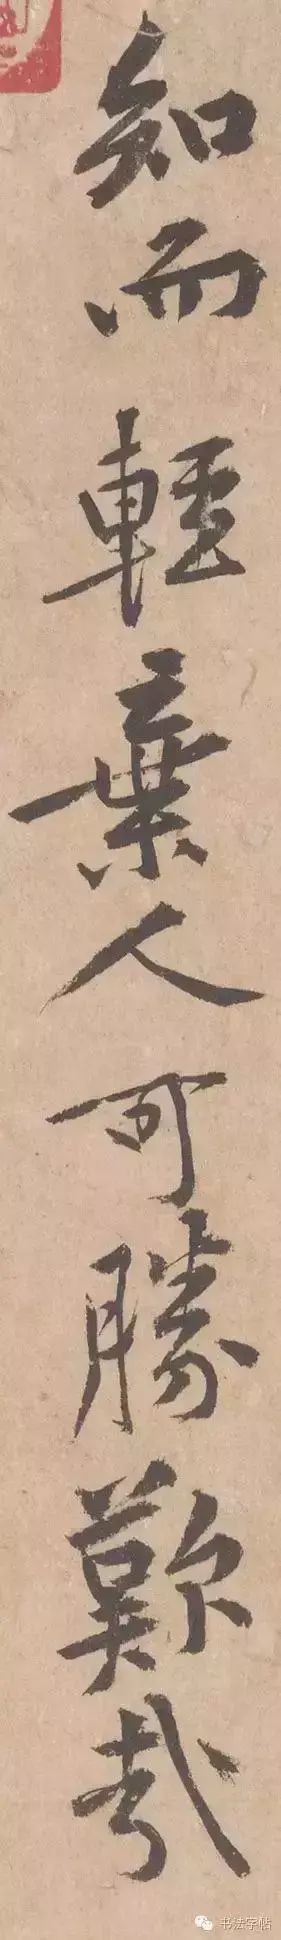 知而輕棄人可勝歎哉
书法字帖